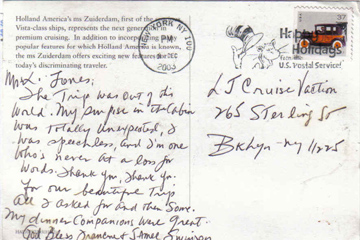 Holland America's ms Zuiderdam, first of the
Vista-class ships, represents the next generation in
premium cruising. In addition to incorporating
popular features for which Holland America is known,
the ms Zuiderdam offers exciting new features for
today's discriminating traveler.
NEW YORK NY 100
PM
DEC
2003
37
Happy
Holidays
from the
U.S. Postal Service!
Mr. L. Jones,
The Trip was out of this
World. My Surprise in the Cabin
was Totally Unexpected, I
was speechless, and I'm one
Who's never at a loss for
Words. Thank You, Thank You.
For our beautiful Trip
All I asked for and Then Some.
My dinner Companions were Great.
God Bless
LJ Cruise
265 Sterling St
Bklyn - NY 11225